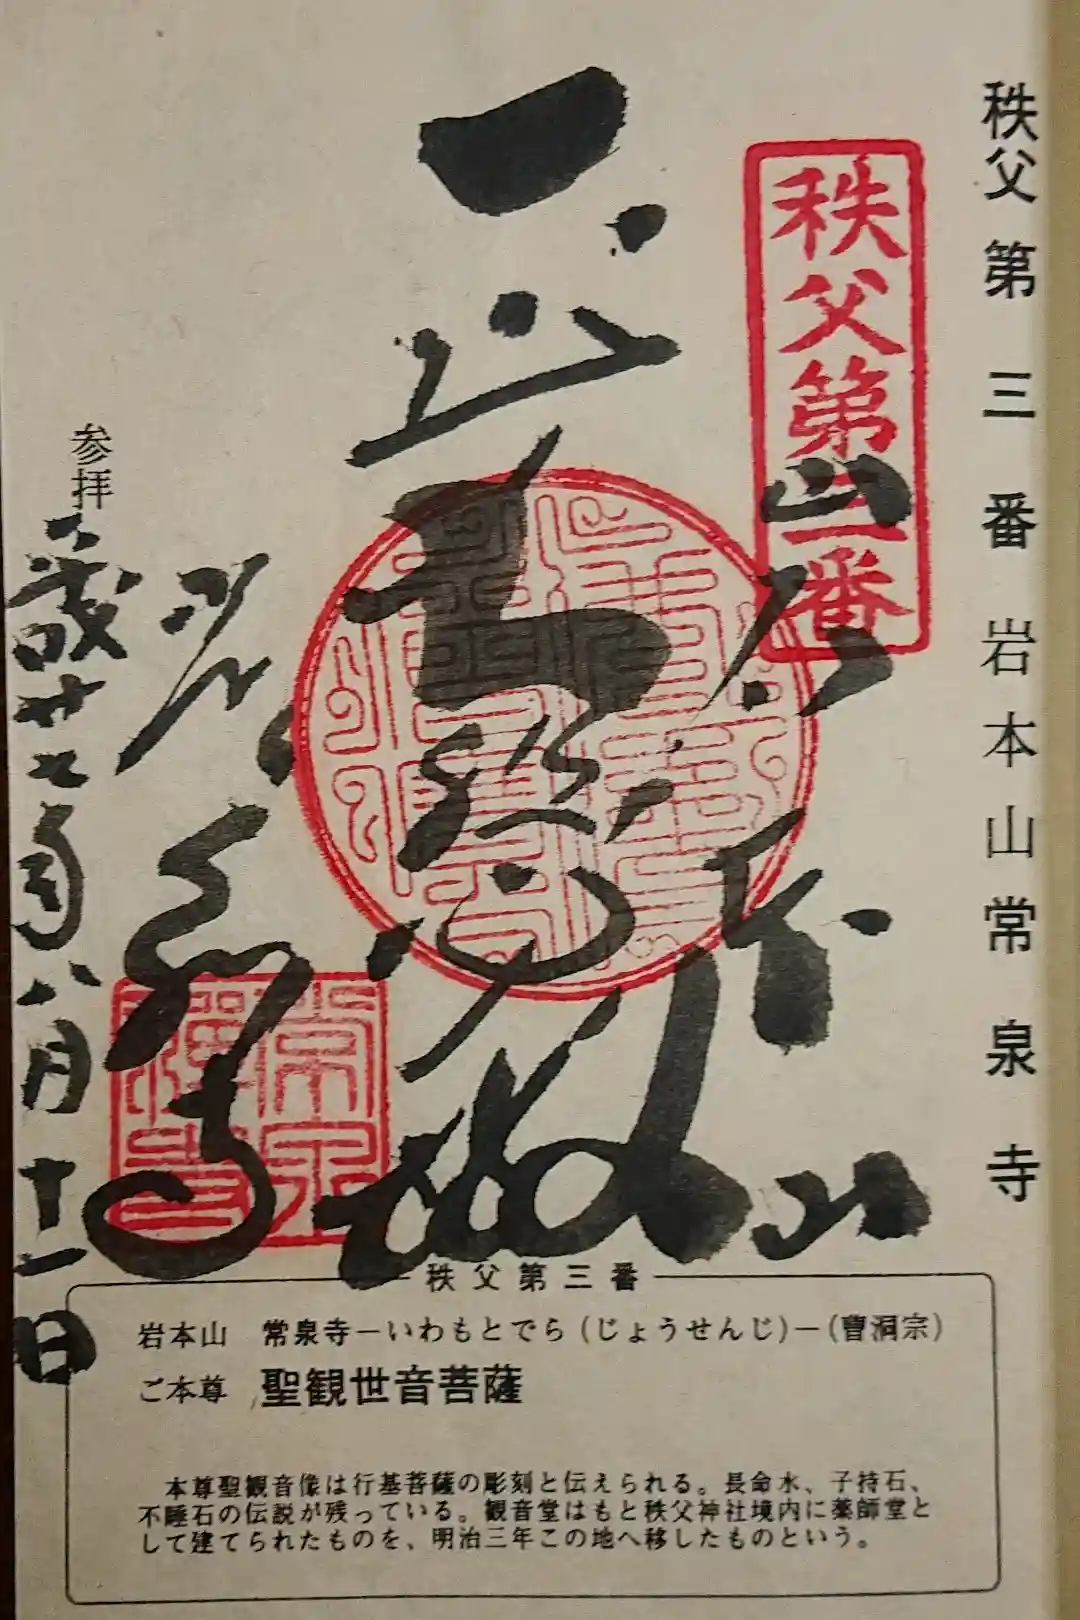 秩父第三番岩本山常泉寺
秩父第三番
岩本山
正大悲殿
常泉寺
参拝
平成廿七年八月十一日
秩父第三番
岩本山 常泉寺－いわもとでら(じょうせんじ)－(曹洞宗)
ご本尊 聖観世音菩薩
本尊聖観音像は行基菩薩の彫刻と伝えられる。長命水、子持石、
不睡石の伝説が残っている。観音堂はもと秩父神社境内に薬師堂と
して建てられたものを、明治三年この地へ移したものという。